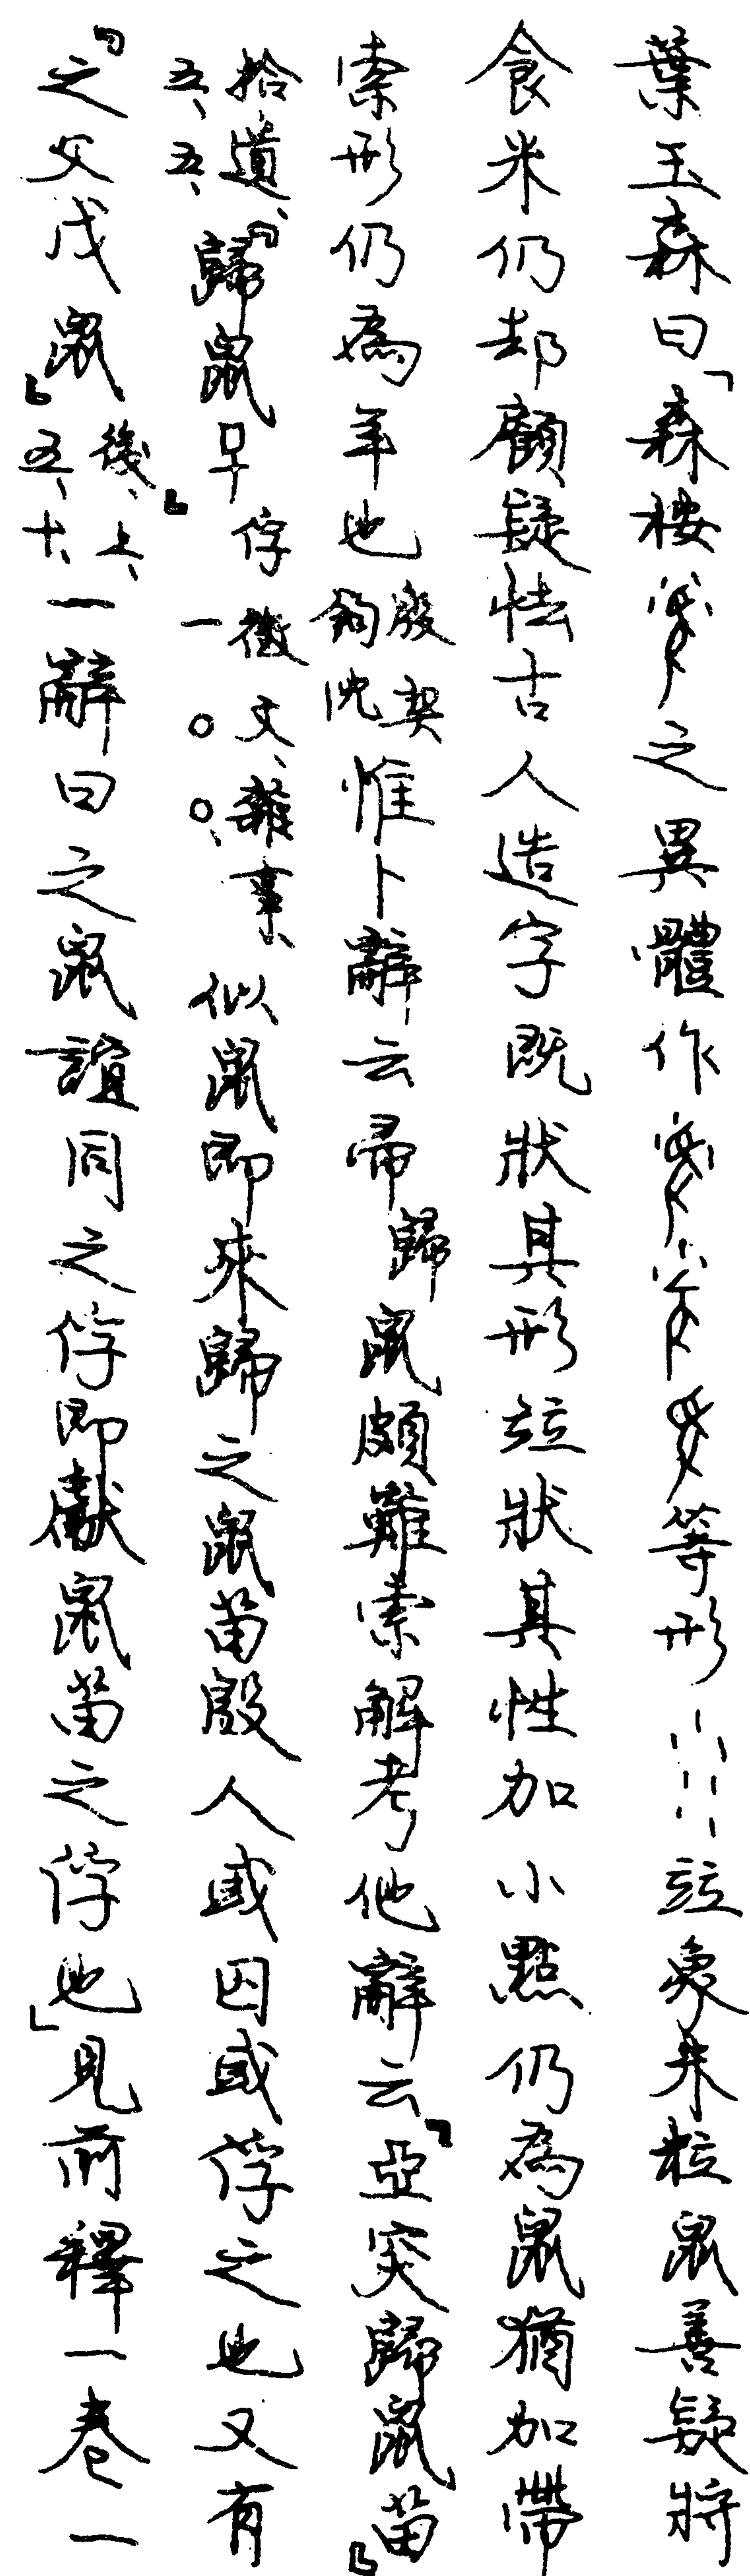 葉玉森曰「森桉之異體作等形竝象米粒鼠善疑將
食米仍却顧疑怯古人造字既狀其形竝狀其性加小點仍為鼠猶加帶
索形仍為羊也殷契鉤沈惟卜辭云帚歸鼠頗難索解考他辭云「亞突歸鼠苗」
拾遺、五、五、「歸鼠」俘徵文、雜事、一〇〇、似鼠即來歸之鼠苗殷人或因或俘之也又有
「之父戊鼠」後、上、五、十、一辭曰之鼠誼同之俘即獻鼠苗之俘也」見前釋一卷一